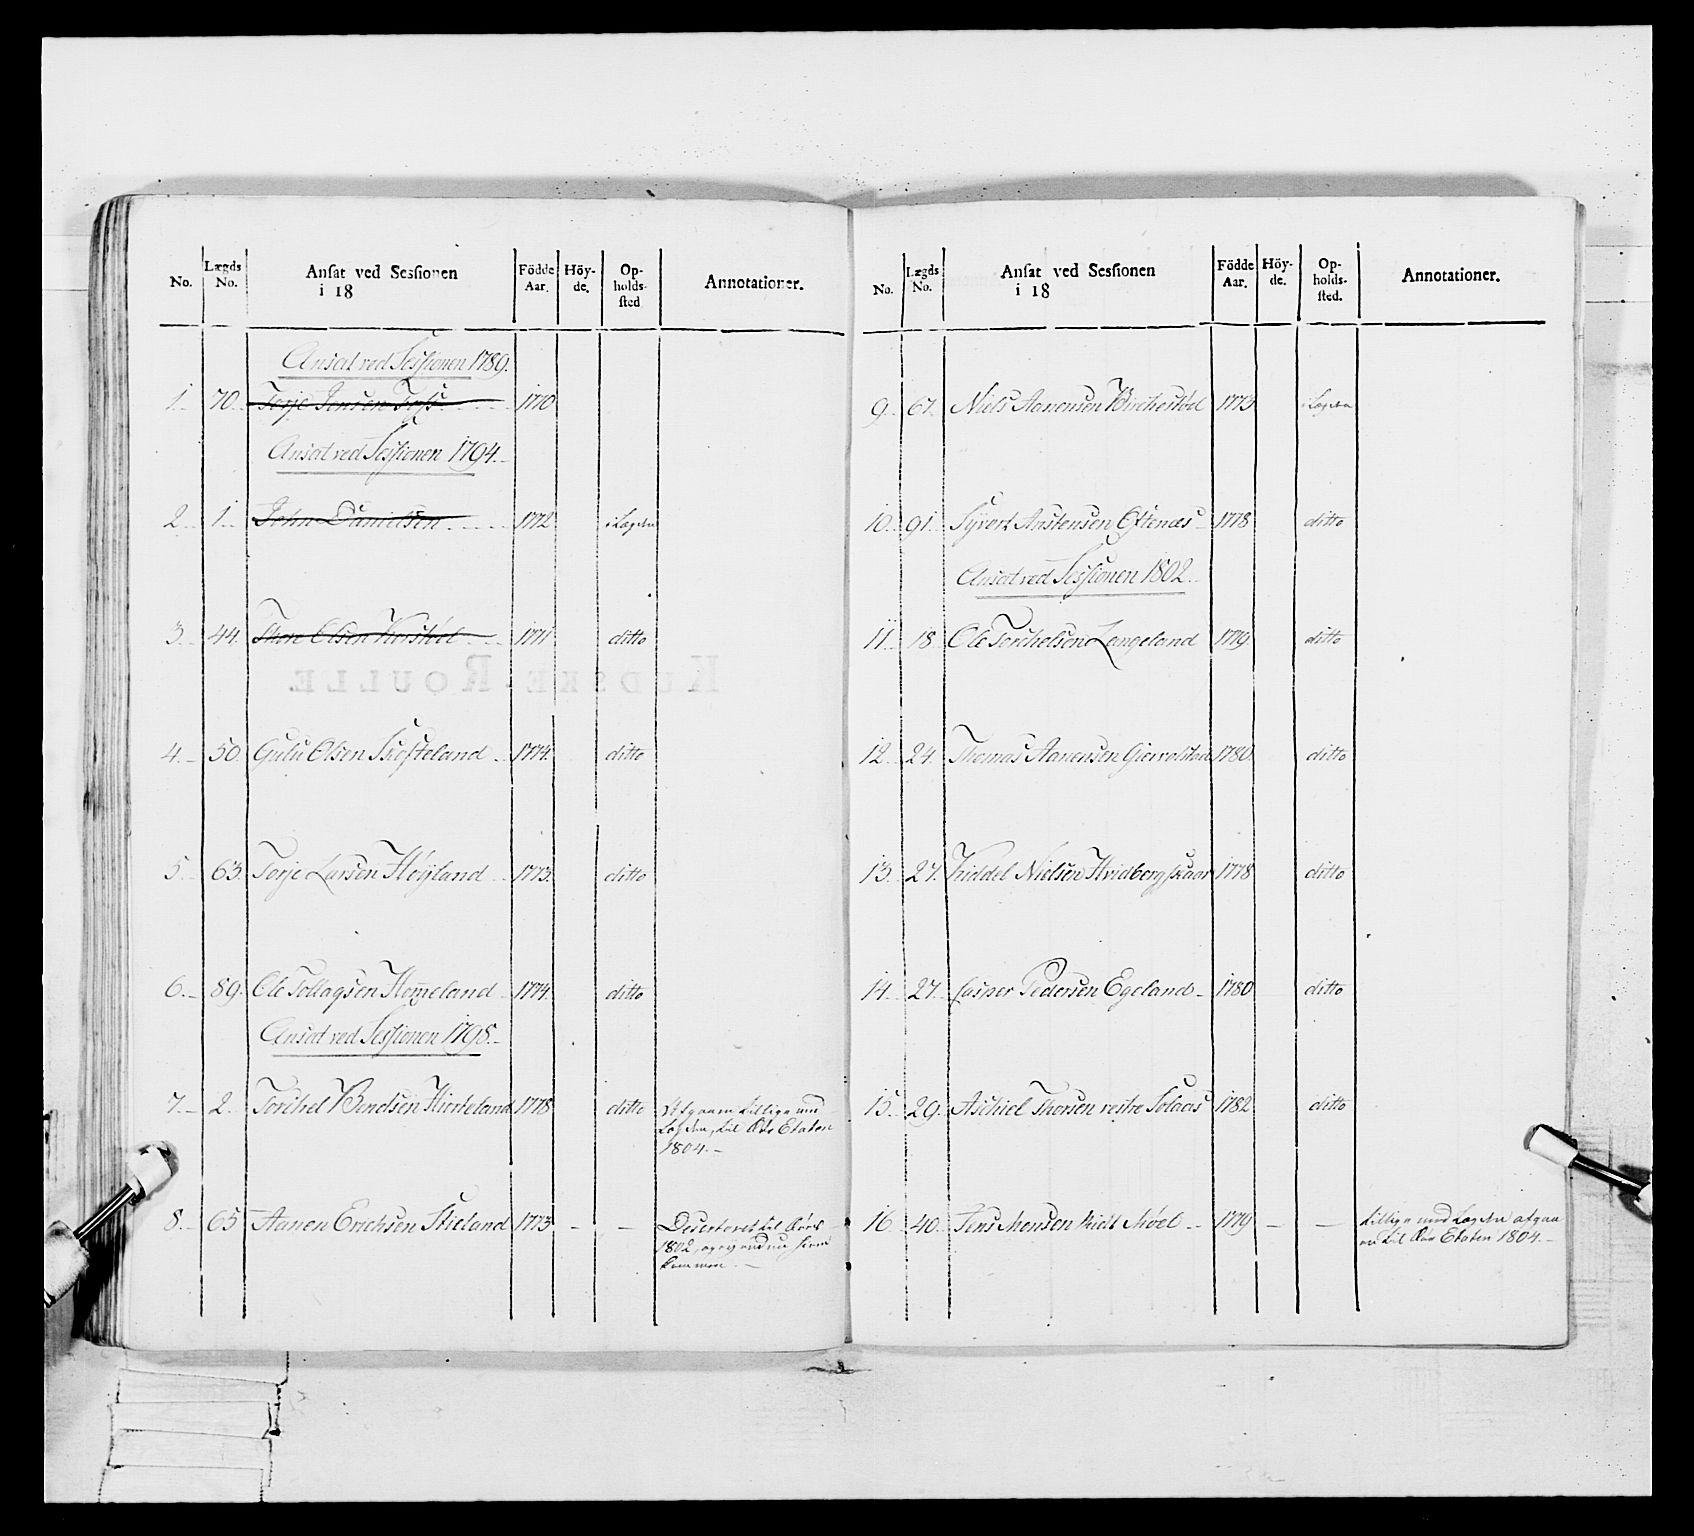 No. Lægds No. Ansat ved Sessionen i 18 Födde Aar. Höy-de. Op-holds-sted Annotationer.
Ansat ved Sessionen 1789.
1. 70. Torje Jensen Foss 1770
Ansat ved Sessionen 1794.
2. 1. John Danielsen 1772 i Lægdn
3. 44. Thore Olsen 1771 ditto
KUDSKE-ROULLE
4. 50. Gulu Olsen Skofteland 1774. ditto
5. 63. Torje Larsen Høyland 1773. ditto
6. 89. Ole Tollagsen Homeland 1774. ditto
Ansat ved Sessionen 1798.
7. 2. Torchel Bendtsen 1778 ditto Afgaaen tillige med
Lægden, til Søe Etaten
1804.
8. 65 Aanen Erichsen Skieland 1773 – – Deserteret til Søes
1802, og ey endnu hiem
kommen.
No. Lægds No. Ansat ved Sessionen i 18 Födde Aar. Höy-de. Op-holds-sted. Annotationer.
9. 67. Niels Aanensen Birchestød 1773 i Lægdn
10. 91. Syvert Anstensen Oftenæs 1778 ditto
Ansat ved Sessionen 1802.
11. 18 Ole Torchelsen Langeland 1779. ditto
12. 24. Thomas Aanensen 1780. ditto
13. 27. Kiddel Nielsen Hvidbergskaar 1778 ditto
14. 27. Casper Pedersen Egeland 1780 ditto
15. 29. Aschiel Thorsen vestre Solaas 1782 ditto
16. 40. Jens Jensen Møel 1779 – – tillige med Lægden afgaa
en til Søe Etaten 1804.